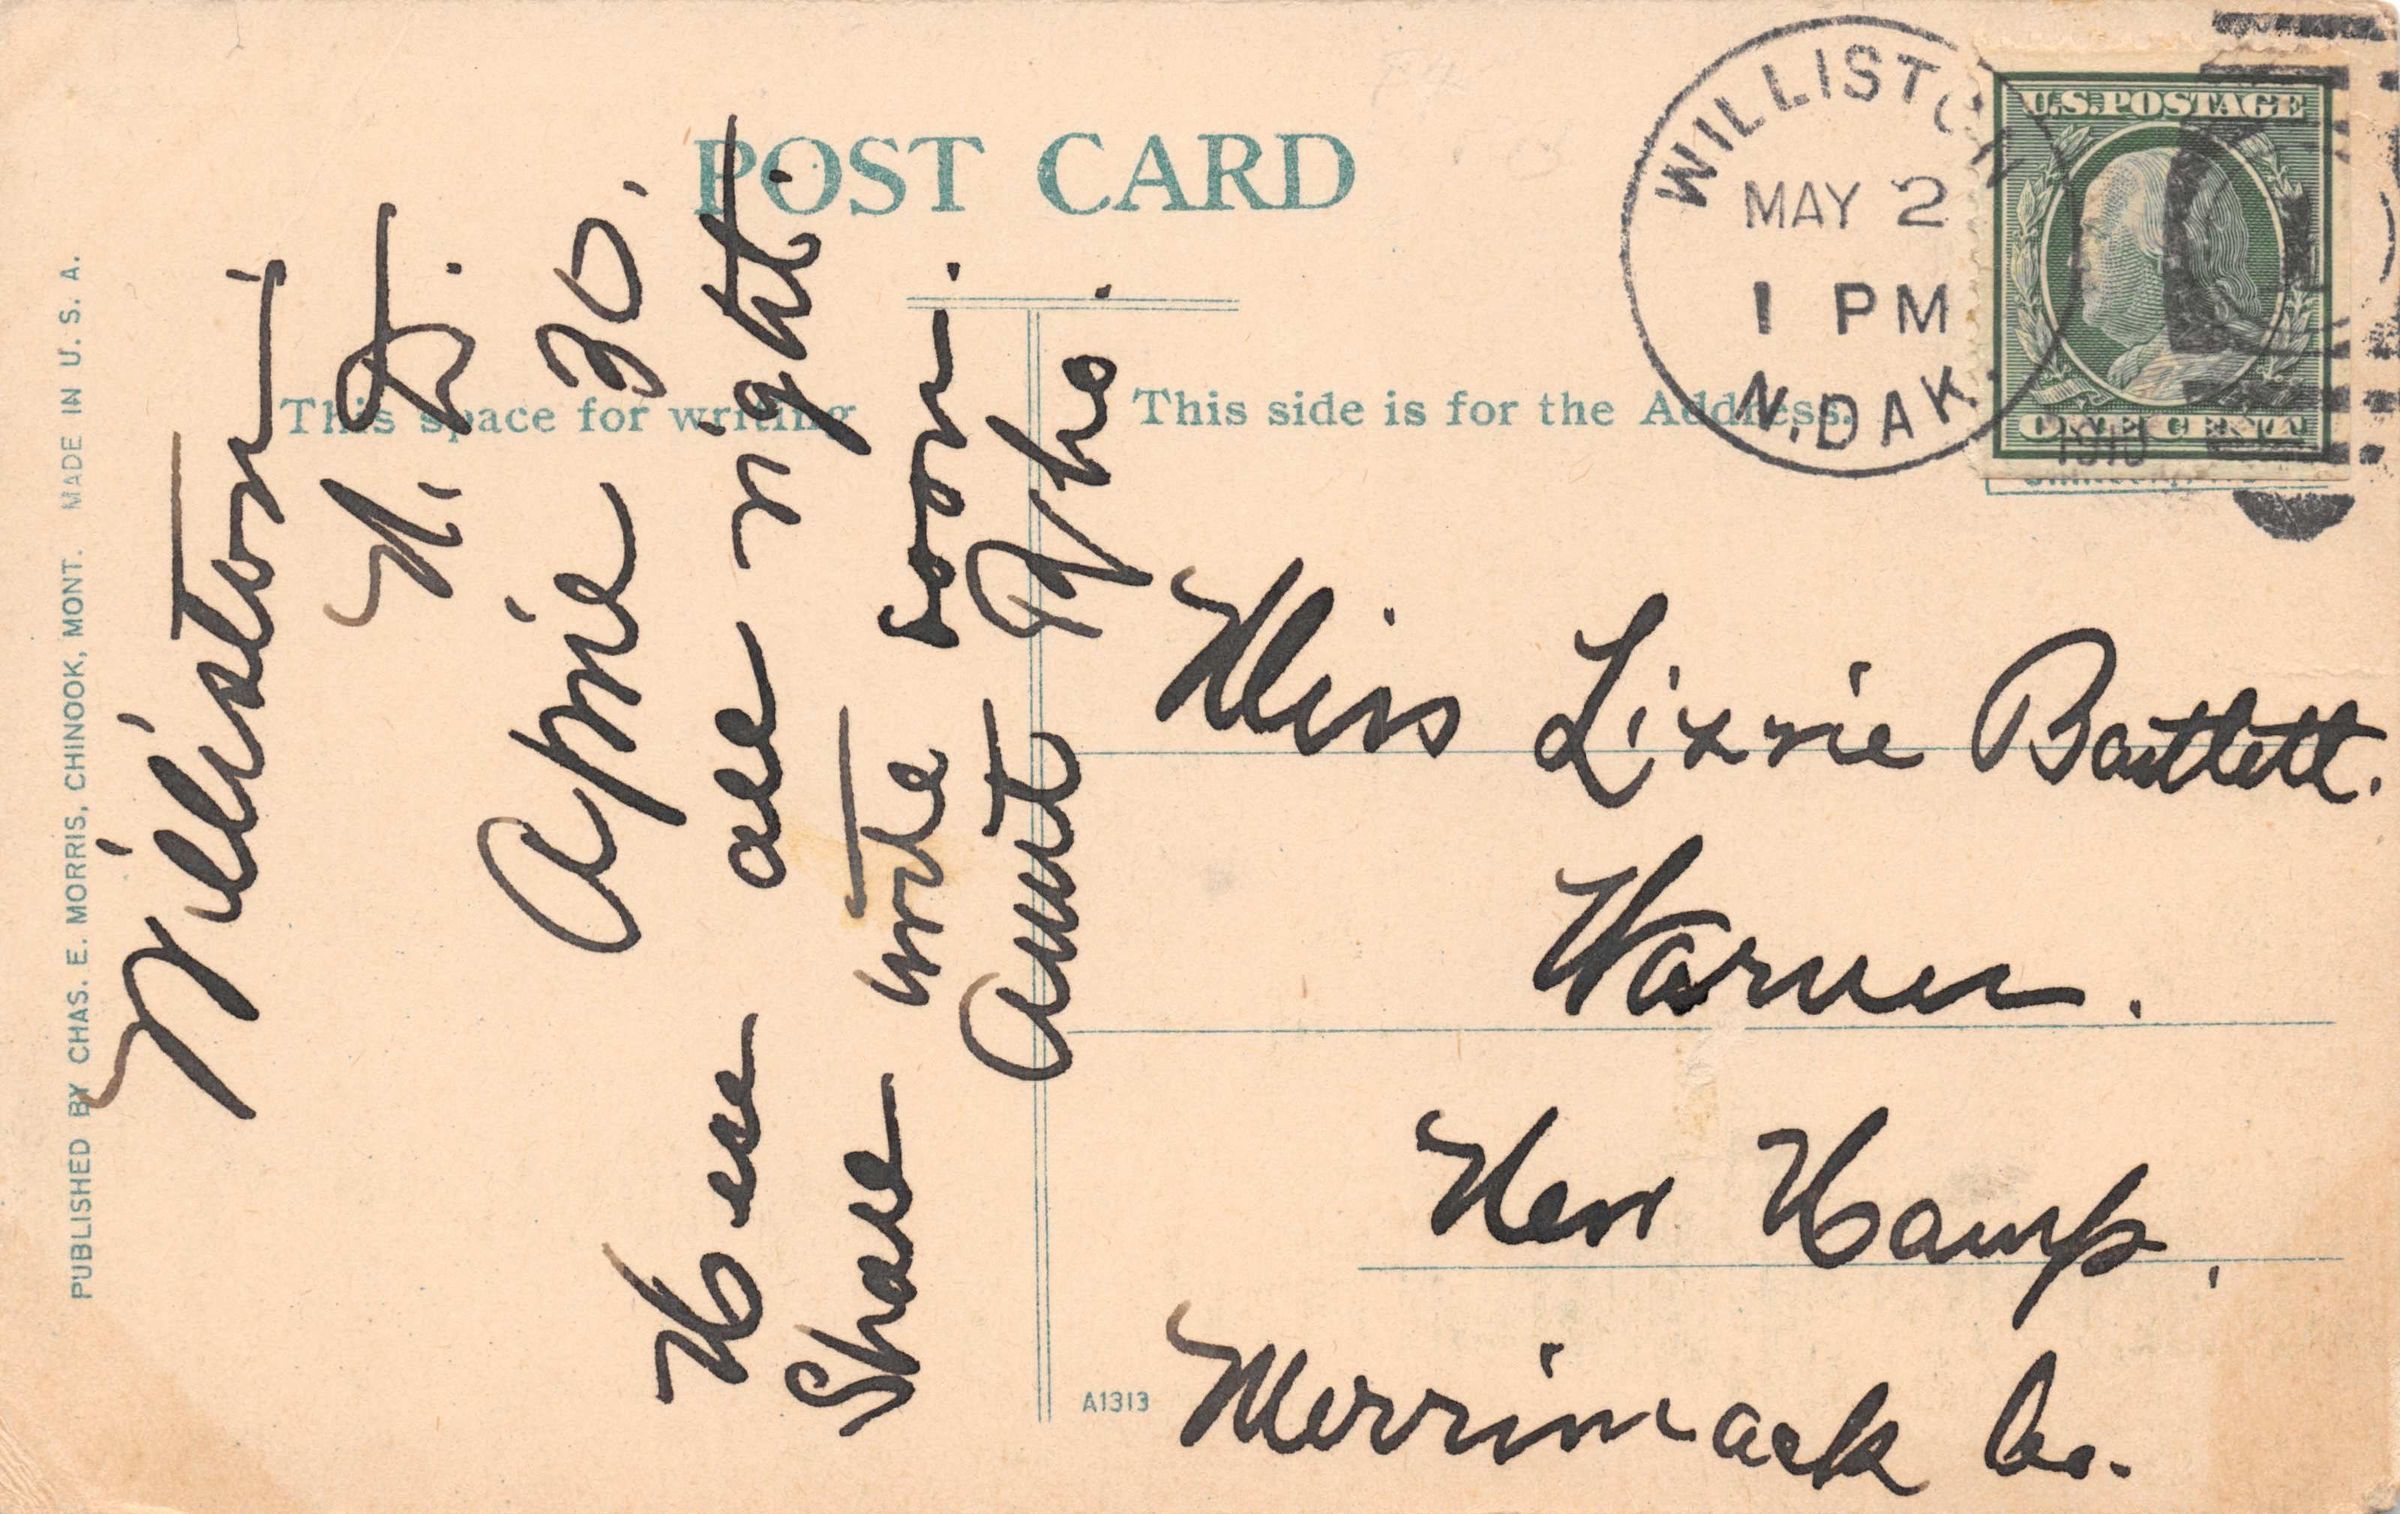 POST CARD
This space for writing
This side is for the Address.
PUBLISHED BY CHAS. E. MORRIS, CHINOOK, MONT. MADE IN U. S. A.
WILLISTON
MAY 2
1 PM
N. DAK.
U.S. POSTAGE
ONE CENT
Williston
N. D.
Aprie 30.
Here all right.
Shall write soon.
Aunt
Miss Lizzie Bartlett.
Warner.
New Hamp.
Merrimack Co.
A1313